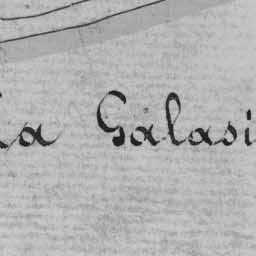 la Galasi